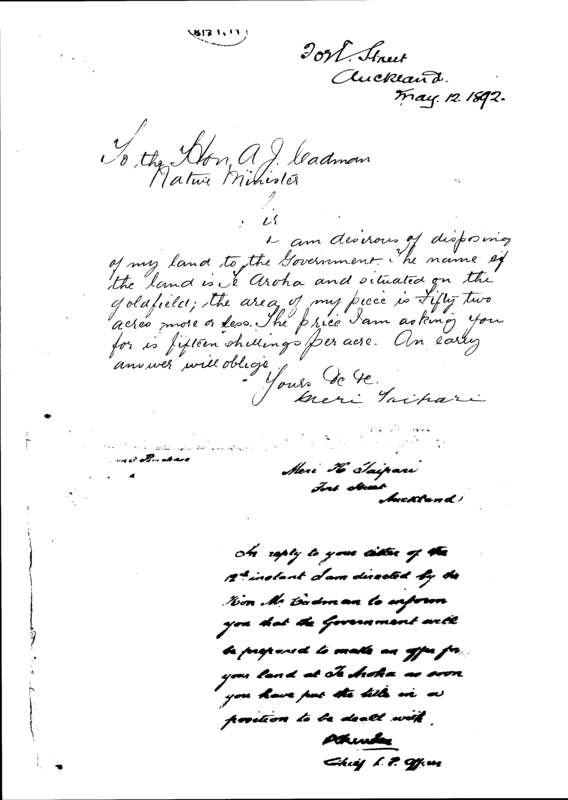 Fort Street
Auckland.
May. 12. 1892.
To the Hon. A J. Cadman
Native Minister
I am desirous of disposing
of my land to the Government. The name of
the land is Te Aroha and situated on the
goldfield; the area of my piece is Fifty two
acres more or less. The price I am asking you
for is fifteen shillings per acre. An early
answer will oblige
Yours &c &c.
Meri Taipari
Purchase
Meri K Taipari
Fort Street
Auckland
In reply to your letter of the
12th instant I am directed by the
Hon Mr Cadman to inform
you that the Government will
be prepared to make an offer for
your land at Te Aroha as soon
you have put the title in a
position to be dealt with.
Chief L. P. Officer